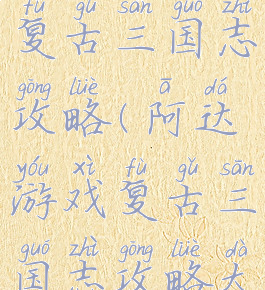 fù gǔ sān guó zhì
复古三国志
gōng lüè ā dá
攻略(阿达
yóu xì fù gǔ sān
游戏复古三
guó zhì gōng lüè dà
国志攻略大